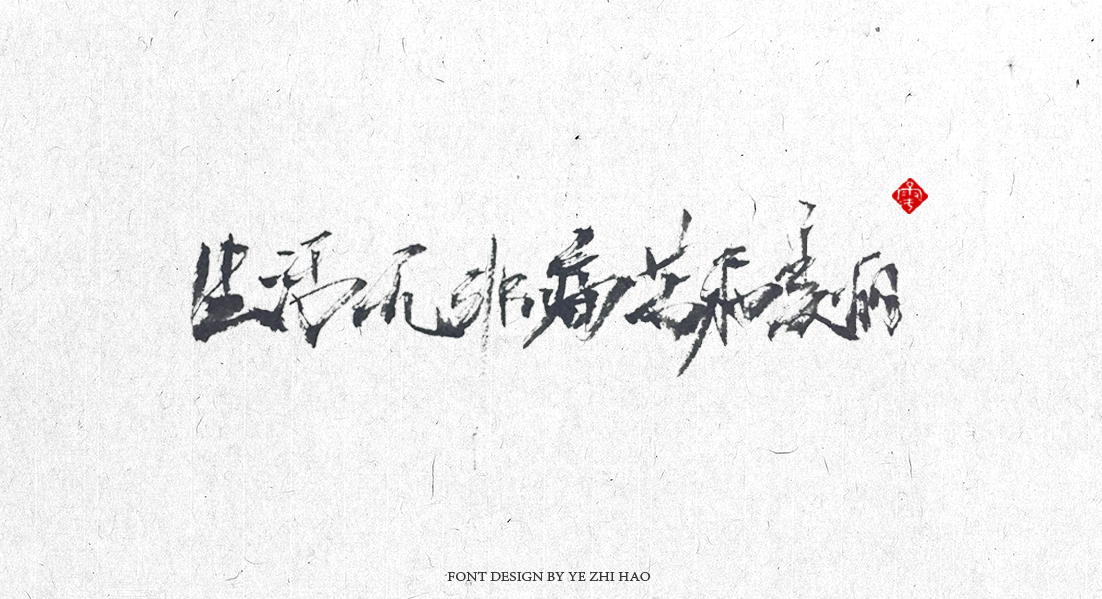 生活无非痛苦和美丽
FONT DESIGN BY YE ZHI HAO